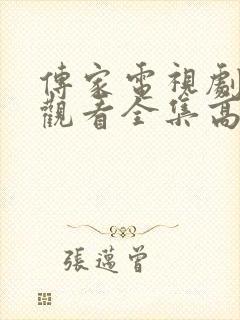 傳家電視劇
觀看全集高
張邁曾